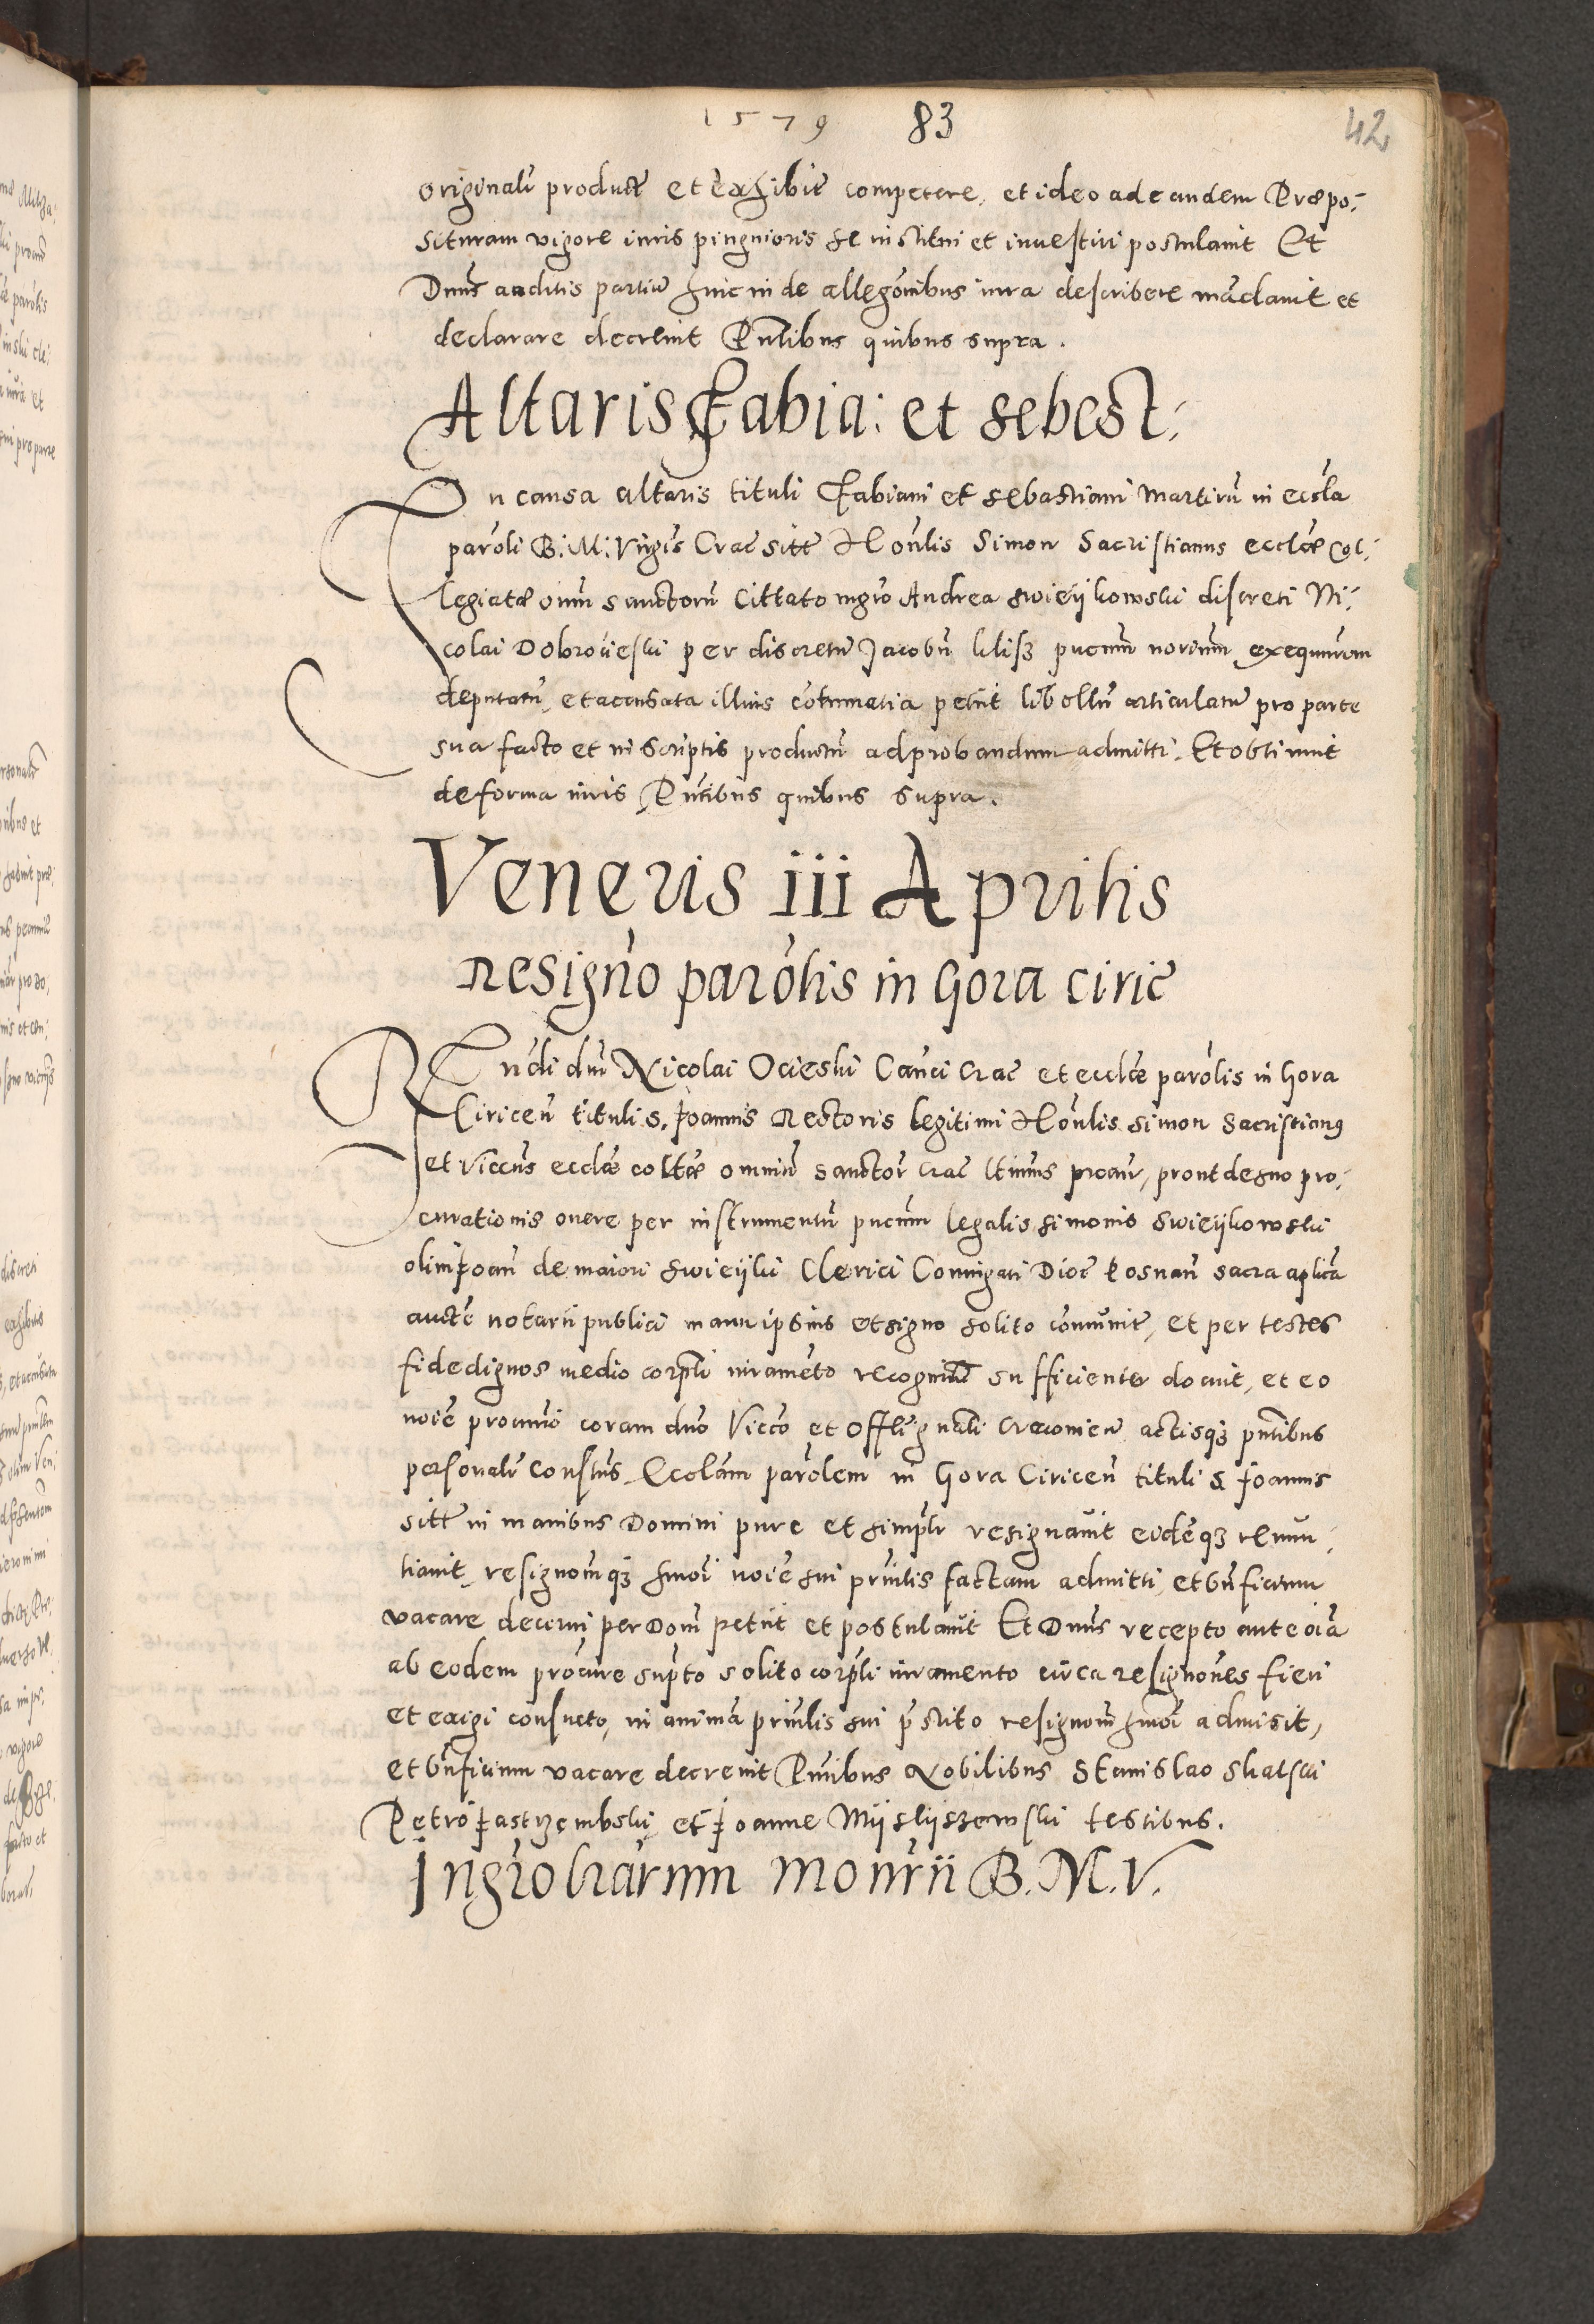 1579 83 42
originali̅ product̅ et exhibit̅ competere, et ideo ad eandem Præpo:
situram vigore iuris pinguioris se institui et inuestiri postulauit Et
Dnus̅ auditis partiu̅ hincinde allego̅nibus iura describere ma̅dauit et
declarare decreuit Pn̅tibus quibus supra.
Altaris Fabia: et sebest:
In causa altaris tituli Fabiani et sebastiani Martiru̅ in eccl̅a
paro̅li B: M: Virgi̅s Crac̅ sitt̅ Hon̅lis Simon Sacristianus eccl̅æ Col:
legiatæ omn̅ sanctoru̅ Cittato mgr̅o Andrea Swieÿkowski discreti Ni:
colai Dobrocieski per discretu̅ Jacobu̅ Klisz puc̅um nor̅ium exequuru̅m
deputatu̅, et accusata illius co̅tumatia petiit libellu̅ articulatu̅ pro parte
sua facto et in scriptis productu̅ ad probandum admitti. Et obtinuit
de forma iuris Pn̅tibus quibus supra.
Veneris iii Aprilis
Resigna̅o paro̅lis in Gora ciric̅
Rn̅di dn̅i Nicolai Ocieski Can̅ci Crac̅ et eccl̅æ paro̅lis in Gora
Ciricen̅ tituli s. Joannis Rectoris legitimi Hon̅lis Simon Sacristianus
et Vicc̅us eccl̅æ coll̅tæ omniu̅ Sanctor̅ Crac̅ ltimus procur̅, prout de suo pro:
curationis onere per instrumentu̅ puc̅um legalis Simonis Swieÿkowski
olim Joan̅ de maiori Swieÿki Clerici Coniugati Dioc̅ Posnan̅ sacra aplic̅a
auct̅e notarii publici manu ipsius et signo solito co̅munit̅, et per testes
fidedignos medio corp̅li iurame̅to recognit̅ sufficienter docuit, et eo
noi̅e procur̅io coram dn̅o Vicc̅o et Offli̅ gn̅ali Cracouien̅ actisq3 pn̅tibus
personali̅ constus̅ Eccl̅am paro̅lem in Gora Ciricen̅ tituli S Joannis
sitt̅ in manibus Domini pure et simpl̅r resignauit eide̅q3 renun:
tiauit, resigno̅mq3 hmo̅i noi̅e sui prin̅lis factam admitti, et bn̅ficium
vacare decerni per Dom̅ petiit et postulauit Et Dnus̅ recepto ante oi̅a
ab eodem procu̅re sup̅to solito corp̅li iuramento circa resigno̅nes fieri
et exigi consueto, in anima̅ prin̅lis sui p̅stito resigno̅m hmo̅i admisit,
et bn̅ficium vacare decreuit Pn̅tibus Nobilibus Stanislao Skarski
Petro Jastrzembski, et Joanne Mÿslÿszewski testibus.
Ingro̅ltiarum mon̅rii B. M. V.